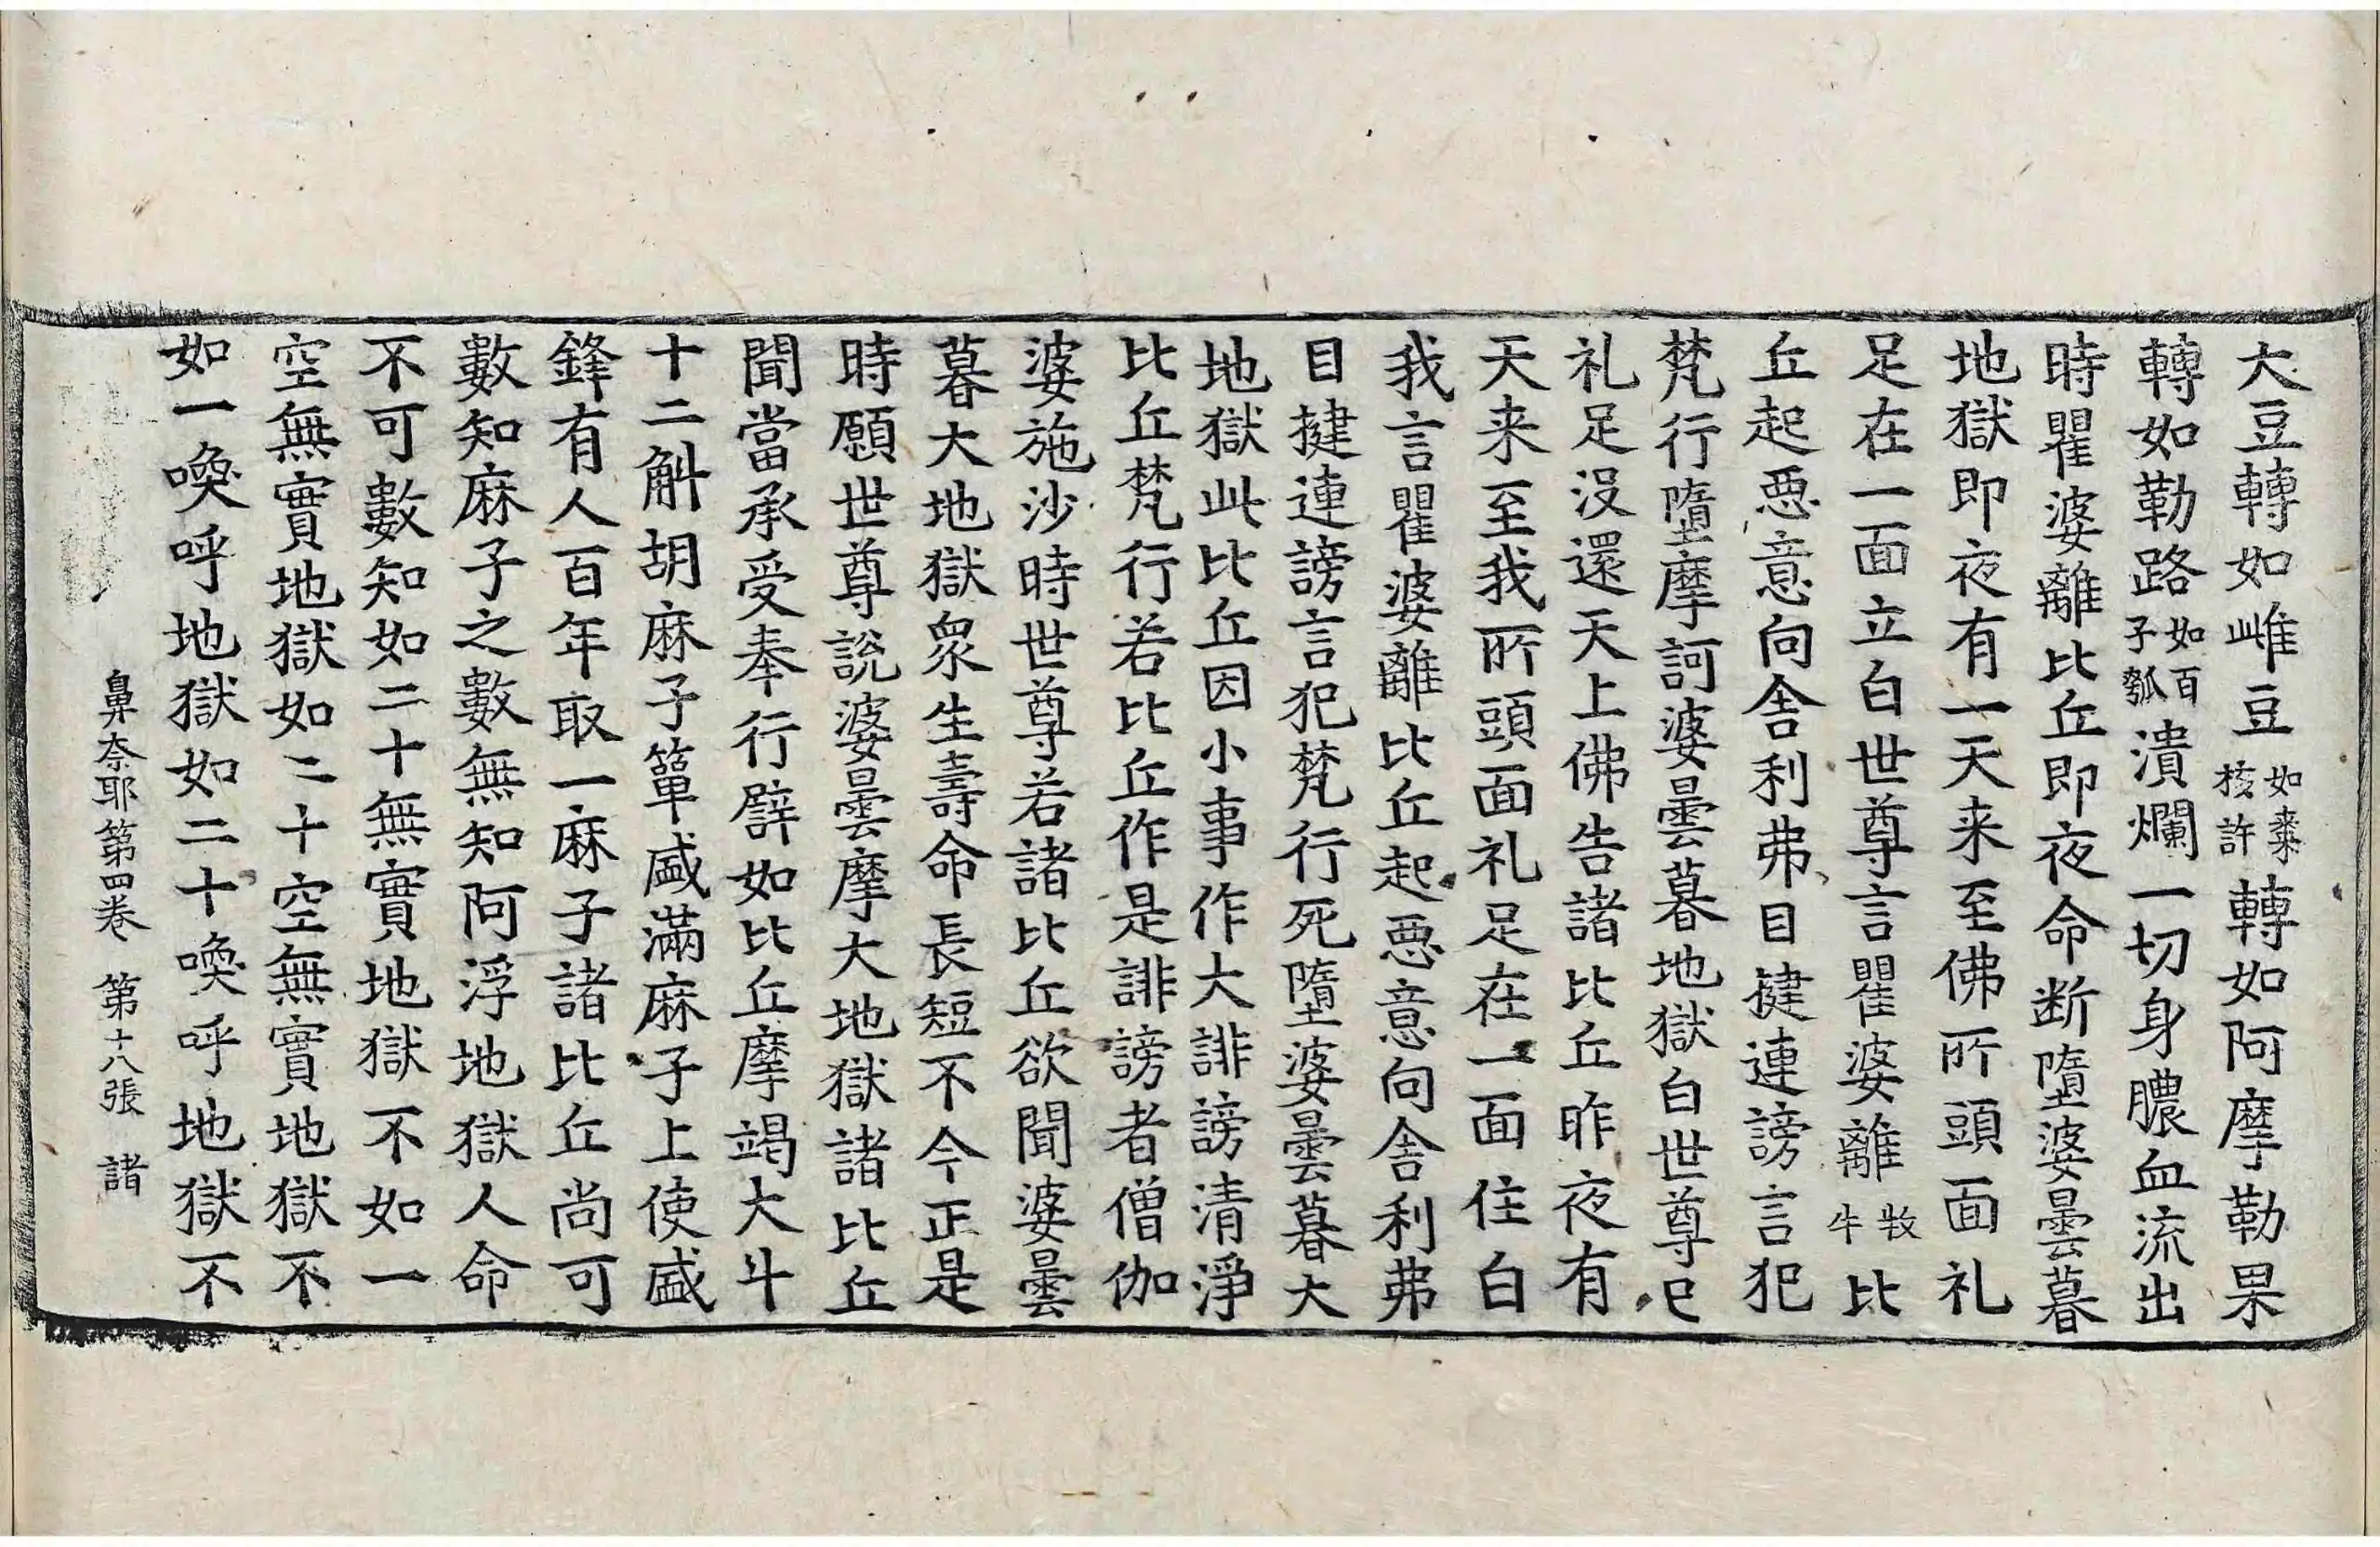 大豆轉如雌豆如棗核許轉如阿摩勒果
轉如勒路如百子瓠潰爛一切身膿血流出
時瞿婆離比丘即夜命断墮婆曇暮
地獄即夜有一天来至佛所頭面礼
足在一面立白世尊言瞿婆離牧牛比
丘起惡意向舍利弗目揵連謗言犯
梵行墮摩訶婆曇暮地獄白世尊已
礼足沒還天上佛告諸比丘昨夜有
天来至我所頭面礼足在一面住白
我言瞿婆離比丘起惡意向舍利弗
目揵連謗言犯梵行死墮婆曇暮大
地獄此比丘因小事作大誹謗清淨
比丘梵行若比丘作是誹謗者僧伽
婆施沙時世尊若諸比丘欲聞婆曇
暮大地獄眾生壽命長短不今正是
時願世尊說婆曇摩大地獄諸比丘
聞當承受奉行譬如比丘摩竭大斗
十二斛胡麻子簞盛滿麻子上使盛
鋒有人百年取一麻子諸比丘尚可
數知麻子之數無知阿浮地獄人命
不可數知如二十無實地獄不如一
空無實地獄如二十空無實地獄不
如一喚呼地獄如二十喚呼地獄不
鼻奈耶第四卷 第十八張 諸